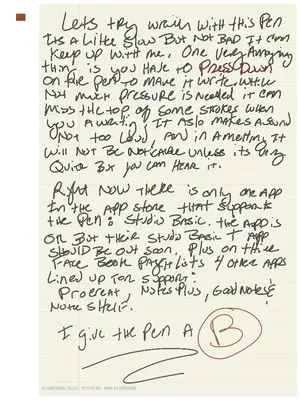 Lets try writing with this Pen
Its a Little Slow But Not Bad It can
keep up with me. One very Annoying
thing is you Have to Press Down
on the pen to make it write, while
Not much pressure is Needed it can
miss the top of some strokes when
you a writing. It Aslo makes a sound
Not too loud, and in a meeting it
will Not Be Noticable unless its very
Quiet But you can Hear it.
Right Now there is only one App
In the App store that supports
the pen: Studio Basic. the App is
OK But their Studio Basic 1 App
Should Be out soon, Plus on their
Face Book Page Lists 4 other Apps
Lined up for support:
Procreat, Notes Plus, Good Notes &
Note Shelf.
I give the Pen A B